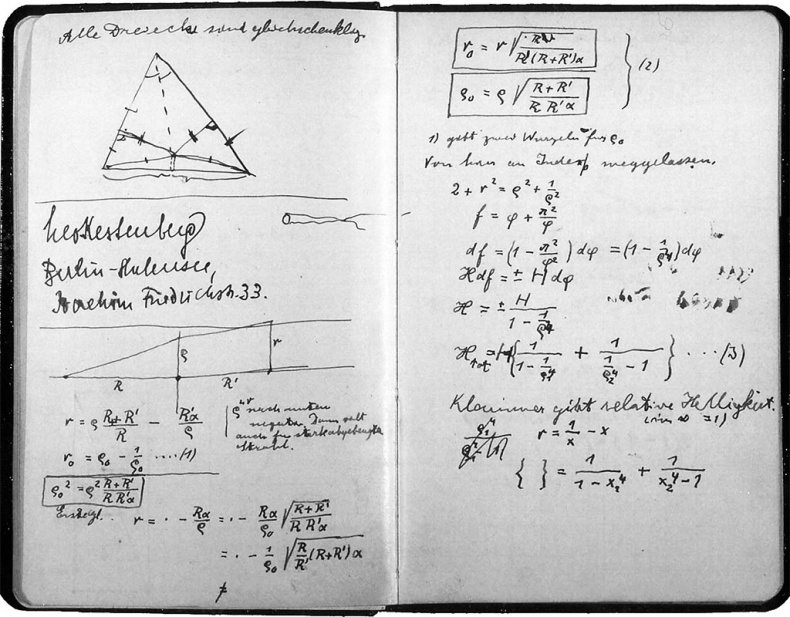 Alle Dreiecke sind gleichschenklig.
Leo Kestenberg
Berlin-Halensee,
Joachim Friedrichstr. 33.
ρ r
R R'
r = ρ (R+R')/R − R'α/ρ
ρ nach unten
negativ. Dann
auch für stark abgebeugte
Strahl.
r₀ = ρ₀ − 1/ρ₀ ....(1)
ρ₀² = ρ² (R+R')/(R R'α)
r = · − Rα/ρ = · − Rα/ρ₀ √((R+R')/(R R'α))
= · − 1/ρ₀ √(R/R' (R+R')α)
r₀ = r √(R/(R'(R+R')α))
ρ₀ = ρ √((R+R')/(R R'α))
} (2)
1) gibt zwei Wurzeln für ρ₀
Von hier an Index weggelassen.
2 + r² = ρ² + 1/ρ²
f = φ + π²/φ
df = (1 − π²/φ²) dφ = (1 − 1/ρ⁴) dφ
H df = ± H dφ
H = ± H/(1 − 1/ρ⁴)
H tot = H { 1/(1 − 1/ρ₁⁴) + 1/(1/ρ₂⁴ − 1) } ···· (3)
Klammer gibt relative Helligkeit.
(in ∞ = 1)
r = 1/x − x
{ } = 1/(1 − x₁⁴) + 1/(x₂⁴ − 1)